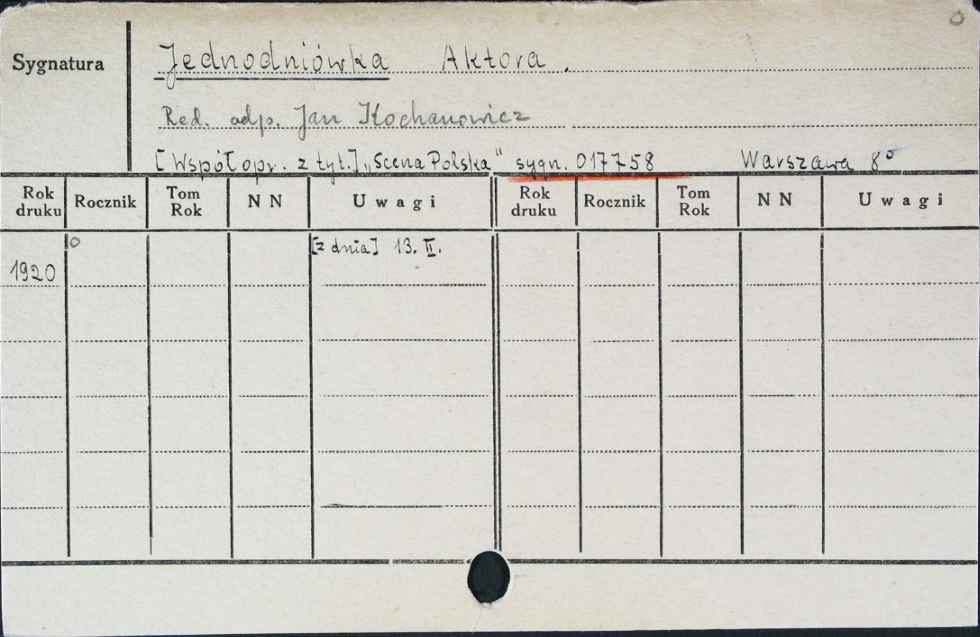 Sygnatura
Jednodniówka Aktora.
Red. odp. Jan Kochanowicz
[Współopr. z tyt.] „Scena Polska" sygn. 017758 Warszawa 8°
Rok druku Rocznik Tom Rok NN Uwagi Rok druku Rocznik Tom Rok NN Uwagi
1920 [z dnia] 13. II.